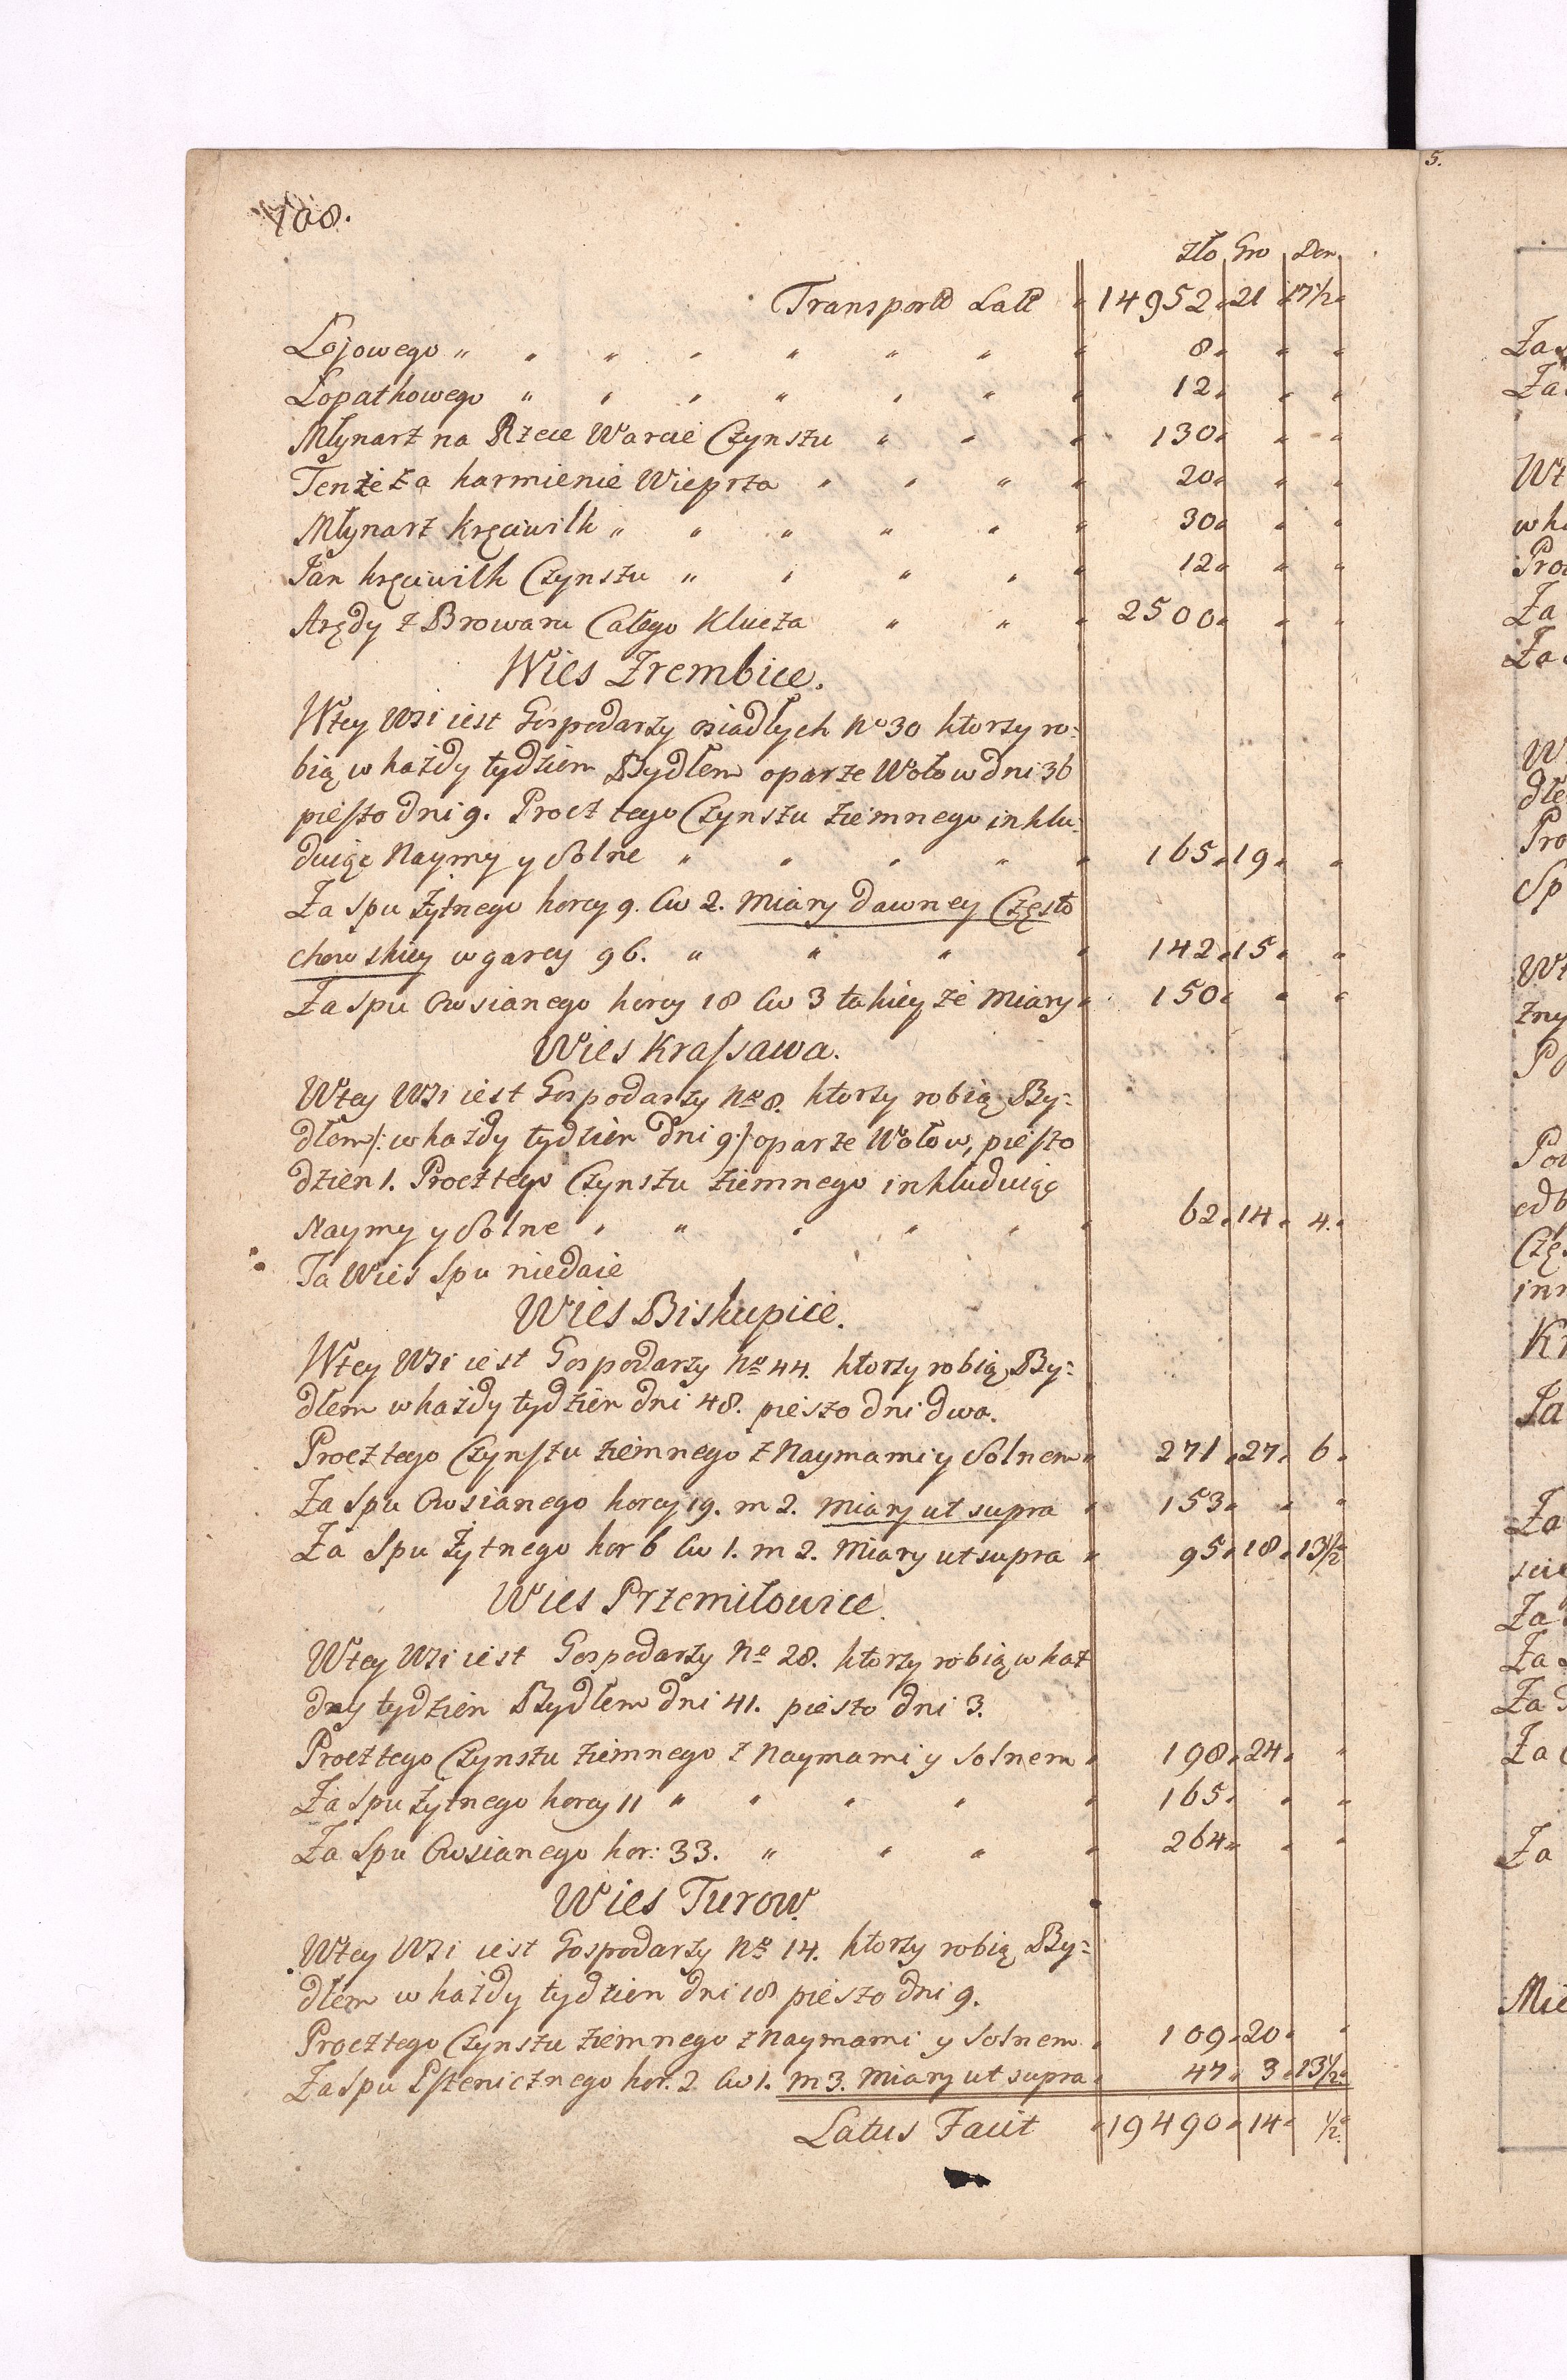 108.
5.
zło Gro Den
Transport Late 14952 21 17½
Łojowego " " " " " " " 8
Łopatkowego " " " " " " 12
Młynarz na Rzece Warcie Czynszu " " 130
Tenże za karmienie Wieprza " " " 20
Młynarz Kręciwilk " " " " " 30
Jan Kręciwilk Czynszu " " " " 12
Arędy z Browaru Całego Klucza " " 2500
Wies Zrembice.
W tey Wsi iest Gospodarzy osiadłych No 30 ktorzy ro:
bią w każdy tydzien Bydłem oparze Wołow dni 36
pieszo dni 9. Procz tego Czynszu ziemnego inklu:
duiąc Naymy y Solne " " " " 165 19
Za Spu Żytnego korcy 9. Cw 2. Miary dawney Często
chowskiey w garcy 96. " " " 142 15
Za Spu Owsianego korcy 18 Cw 3 takiey że Miary 150
Wies Krassawa.
W tey Wsi iest Gospodarzy No 8. ktorzy robią By:
dłem /: w każdy tydzien dni 9 :/ oparze Wołow, pieszo
dzien 1. Procz tego Czynszu ziemnego inkluduiąc
Naymy y Solne " " " " " 62 14 4.
Ta Wies Spu niedaie
Wies Biskupice.
W tey Wsi iest Gospodarzy No 44. ktorzy robią By:
dłem w każdy tydzien dni 48. pieszo dni dwa.
Procz tego Czynszu ziemnego z Naymami y Solnem 271 27 6
Za Spu Owsianego korcy 19. m 2. Miary ut supra 153
Za Spu Żytnego kor 6 Cw 1. m 2. Miary ut supra 95 18 13½
Wies Przemiłowice.
W tey Wsi iest Gospodarzy No 28. ktorzy robią w kaz
dny tydzien Bydłem dni 41. pieszo dni 3.
Procz tego Czynszu ziemnego z Naymami y Solnem 198 24
Za Spu Żytnego korcy 11 " " " " 165
Za Spu Owsianego kor: 33. " " " 264
Wies Turow.
W tey Wsi iest Gospodarzy No 14. ktorzy robią By:
dłem w każdy tydzien dni 18 pieszo dni 9.
Procz tego Czynszu ziemnego z Naymami y Solnem 109 20
Za Spu Pszenicznego kor. 2 Cw 1. m 3. Miary ut supra 47 3 13½
Latus Facit 19490 14 ½